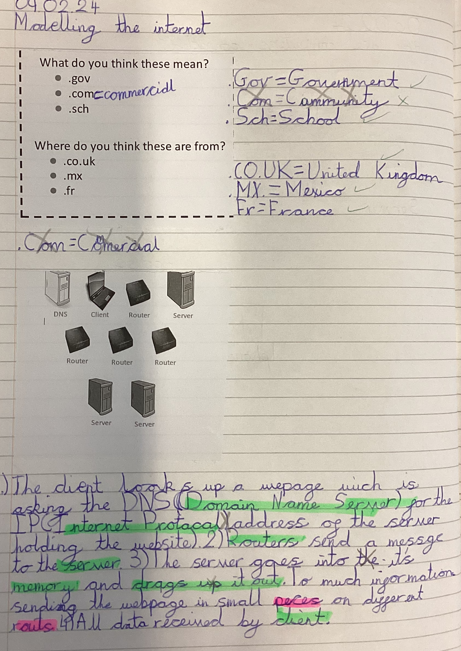 09.02.24
Modelling the internet
What do you think these mean?
.gov
.com=commercial
.sch
.Gov=Government
.Com=Cammunity
.Sch=School
Where do you think these are from?
.co.uk
.mx
.fr
CO.UK=United Kingdom
MX.=Mexico
Fr=France
.Com=Comercial
DNS Client Router Server
Router Router Router
Server Server
1)The client looks up a wepage wich is
asking the DNS (Domain Name Server) for the
IP(Internet Protacal)address of the server
holding the website). 2)Routers send a messge
to the server. 3)The server goes into it's
memory and drags it out. To much information
sending the webpage in small peces on different
routs. 4)All data received by client.